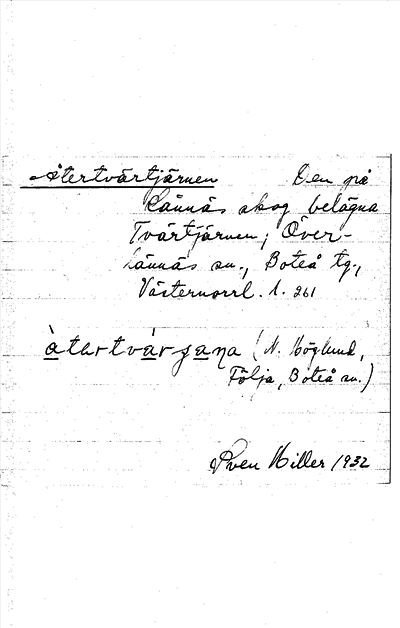 Återtvärtjärnen Den på
Rännäs skog belägna
Tvärtjärnen; Över-
lännäs sn., Boteå tg.,
Västernorrl. l. 261
àtertvárjaŋa (N. Höglund,
Följa, Boteå sn.)
Sven Hiller 1932